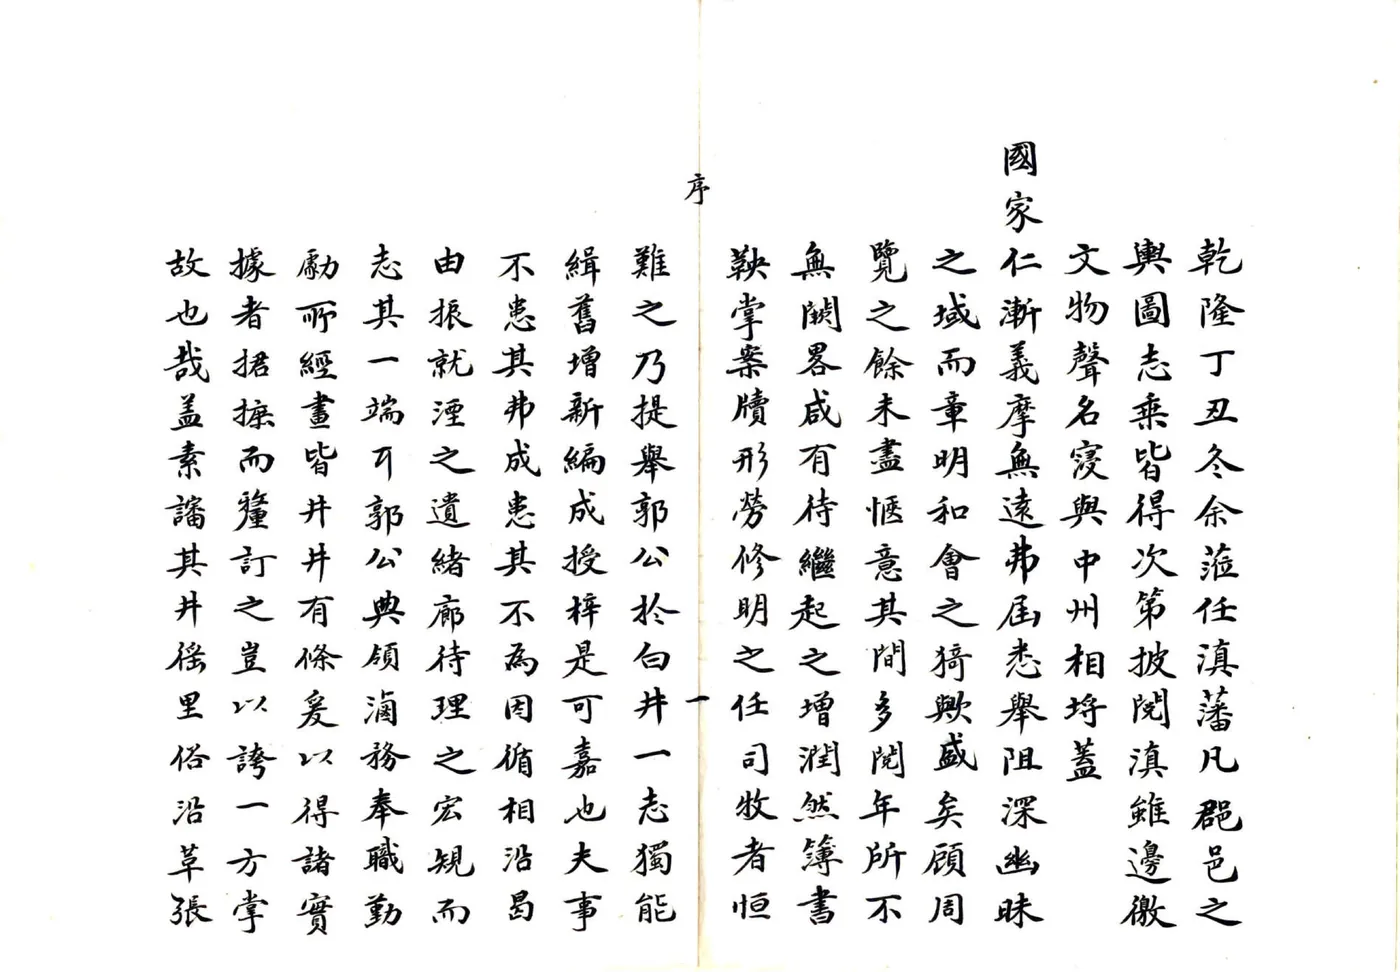 乾隆丁丑冬余蒞任滇藩凡郡邑之
輿圖志乘皆得次第披閱滇雖邊徼
文物聲名寖與中州相埒蓋
國家仁漸義摩無遠弗屆悉舉阻深幽昧
之域而章明和會之猗歟盛矣顧周
覽之餘未盡愜意其間多閱年所不
無闕畧咸有待繼起之增潤然簿書
鞅掌案牘形勞修明之任司牧者恒
序
一
難之乃提舉郭公於白井一志獨能
緝舊增新編成授梓是可嘉也夫事
不患其弗成患其不為因循相沿曷
由振就湮之遺緒廓待理之宏規而
志其一端耳郭公典領滷務奉職勤
勵所經畫皆井井有條爰以得諸實
據者捃摭而釐訂之豈以誇一方掌
故也哉盖素諳其井徭里俗沿革張